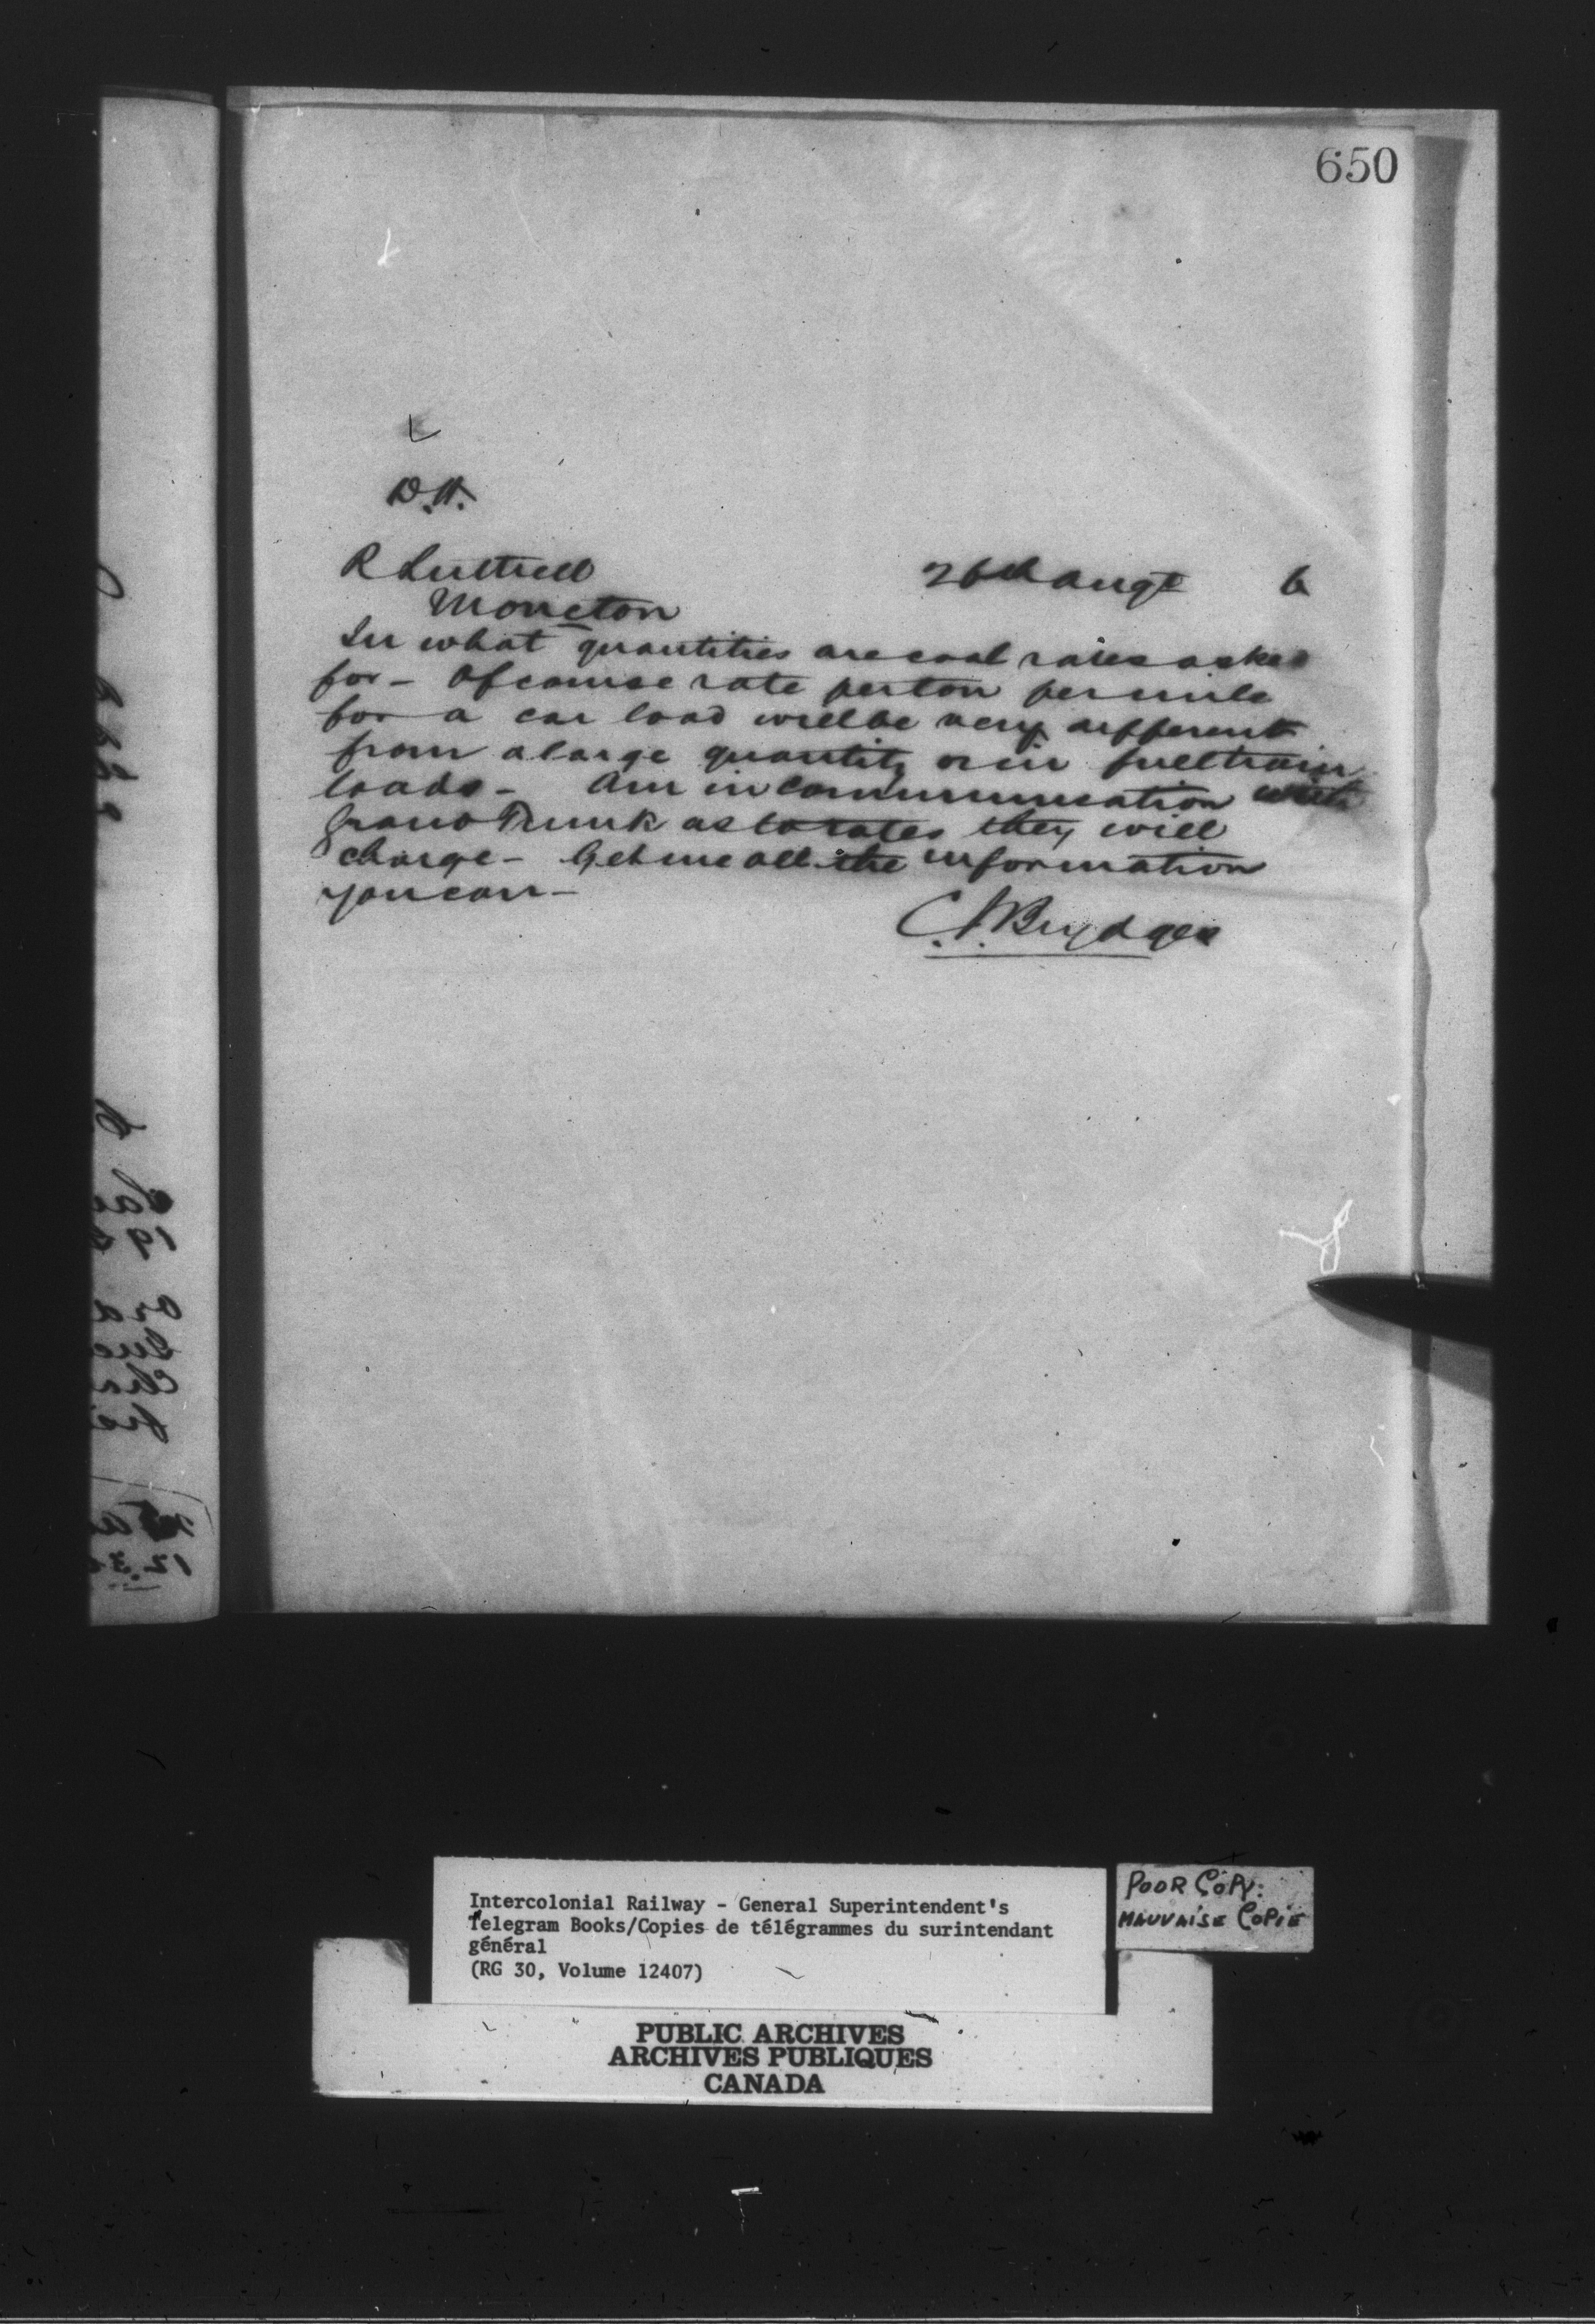 650
D.H.
R Luttrell
26th Augt 6
Moncton
In what quantities are coal rates asked
for - Of course rate per ton per mile
for a car load will be very different
from a large quantity or in full train
loads - Am in communication with
Grand Trunk as to rates they will
charge - Get me all the information
you can -
C.J. Brydges
Intercolonial Railway - General Superintendent's
Telegram Books/Copies de télégrammes du surintendant
général
(RG 30, Volume 12407)
POOR COPY:
MAUVAISE COPIE
PUBLIC ARCHIVES
ARCHIVES PUBLIQUES
CANADA